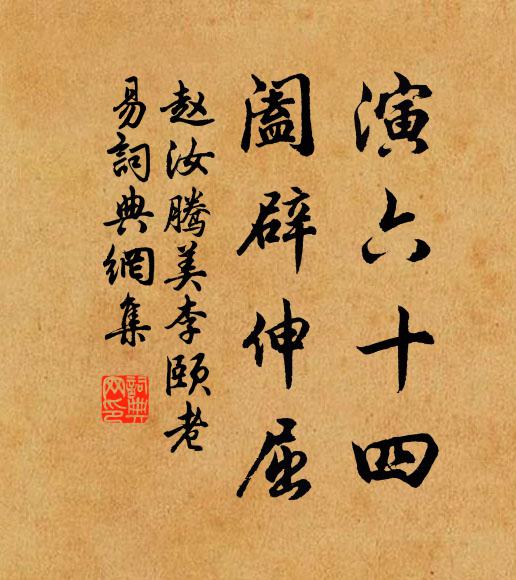 演六十四
阖辟伸屈
赵汝腾美李颐老
易詞典網集
詞典
网印